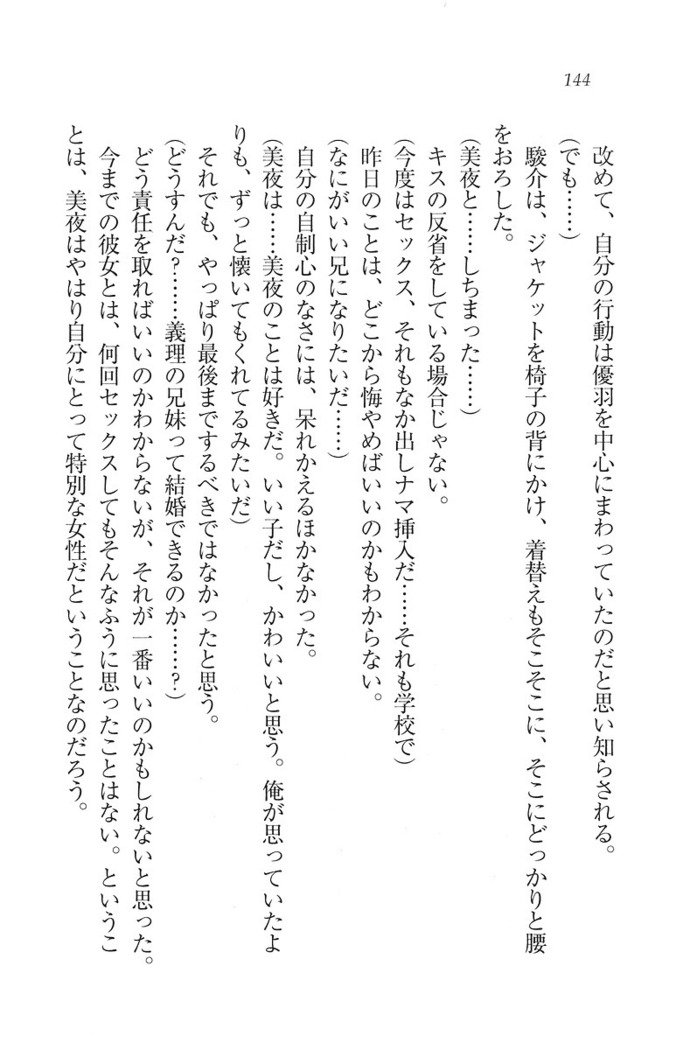 144
改めて、自分の行動は優羽を中心にまわっていたのだと思い知らされる。
(でも……)
駿介は、ジャケットを椅子の背にかけ、着替えもそこそこに、そこにどっかりと腰
をおろした。
(美夜と……しちまった……)
キスの反省をしている場合じゃない。
(今度はセックス、それもなか出しナマ挿入だ……それも学校で)
昨日のことは、どこから悔やめばいいのかもわからない。
(なにがいい兄になりたいだ……)
自分の自制心のなさには、呆れかえるほかなかった。
(美夜は……美夜のことは好きだ。いい子だし、かわいいと思う。俺が思っていたよ
りも、ずっと懐いてもくれてるみたいだ)
それでも、やっぱり最後まですべきではなかったと思う。
(どうすんだ？……義理の兄妹って結婚できるのか……？)
どう責任を取ればいいのかわからないが、それが一番いいのかもしれないと思った。
今までの彼女とは、何回セックスしてもそんなふうに思ったことはない。というこ
とは、美夜はやはり自分にとって特別な女性だということなのだろう。